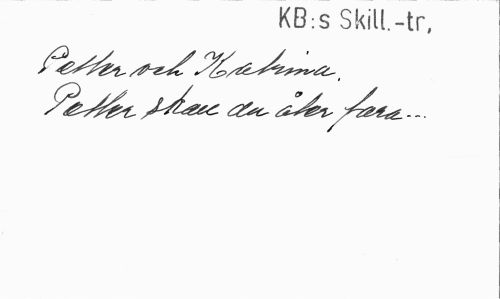 KB:s Skill.-tr,
Petter och Katrina.
Petter skall du åter fara...